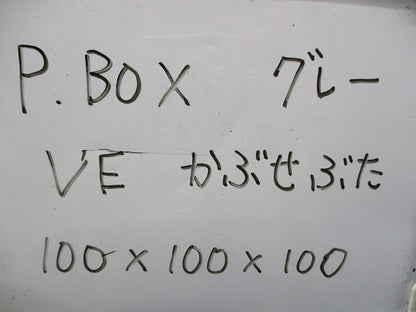 P.BOX グレー
VE かぶせぶた
100×100×100